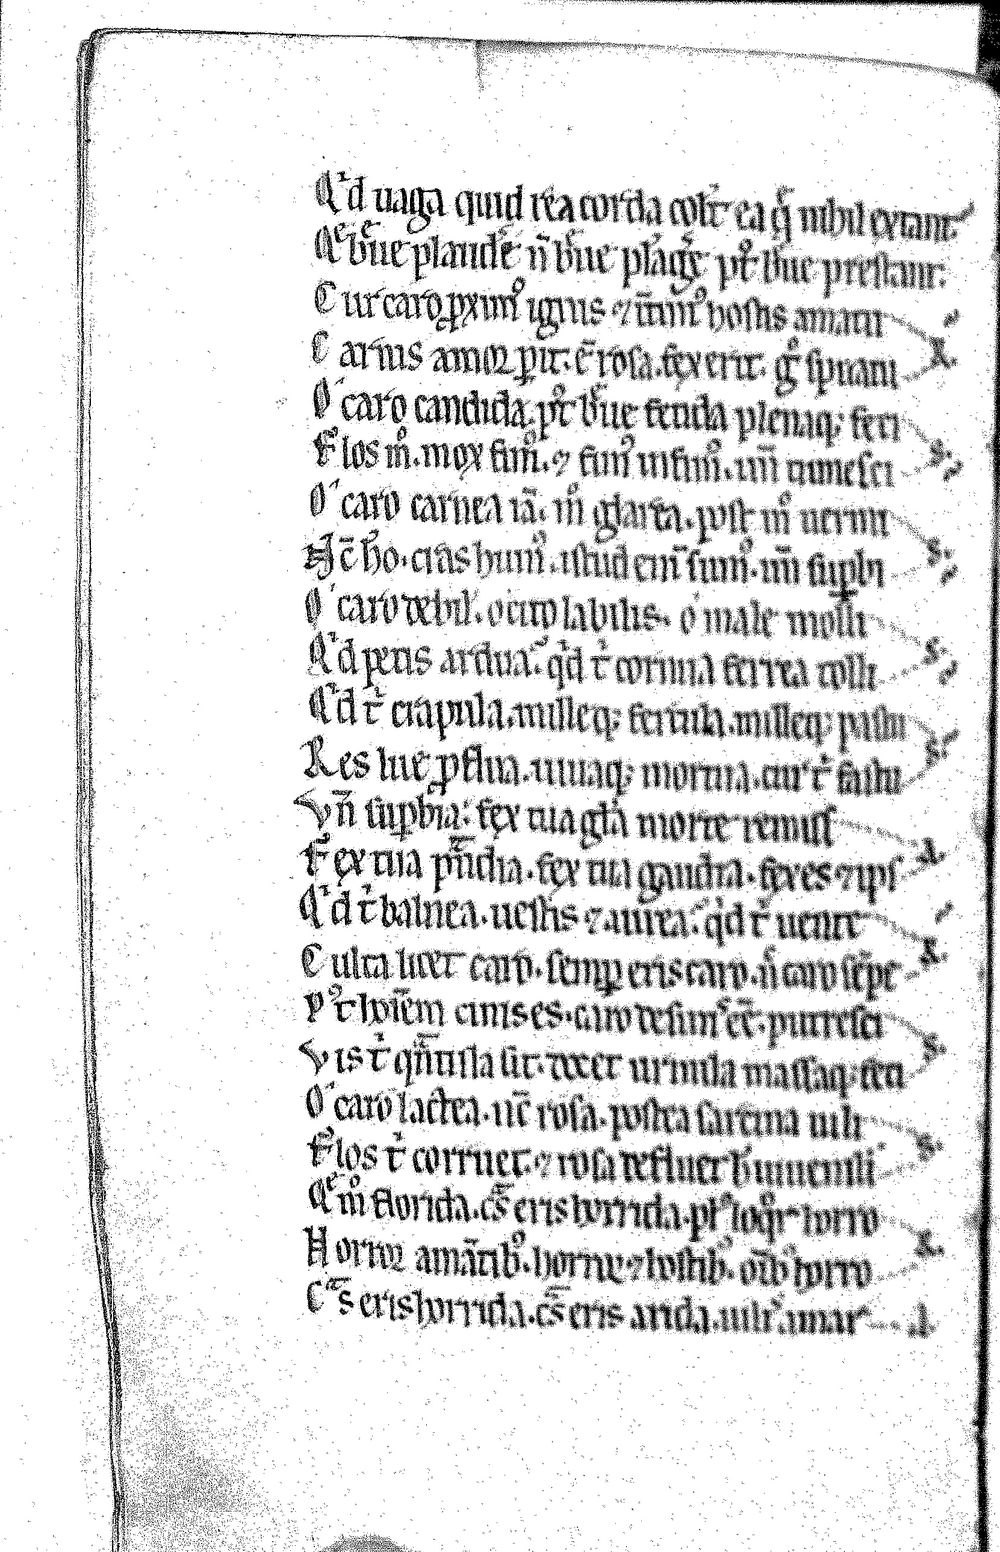 Qͥd uaga quid rea corda colit̾ ea q̄ nihil extant
Qͤ bͬue plaudē n̄ bͬue plāgē pꝰt bͬue prestant.
Cur caro ꝓximꝰ ignis ⁊ ītimꝰ hostis amari
Carius amor ꝑit. ē rosa. fex erit. gͦ spuani
O caro candida. pꝰt bͬue fenda plenaq; feci
Flos mͦ. mox fimꝰ. ⁊ fimꝰ infimꝰ. un̄ tumesci
O caro carnea iā. mͦ glārea. post mͦ uermi
Nc̄ hō. cras humꝰ. istud em̄ sumꝰ. un̄ suꝑbi
O caro debil̾. o cito labilis. o male molli
Qͥd petis ardua. qͥd t̾ cornua ferrea colli
Qͥd tͥ crapula. milleq; fercula. milleq; pastu
Res lue ꝓflua. uiuaq; mortua. cur tͥ fastu
Vn̄ suꝑbia. fex tua gl̄a morte remiss
Fex tua prandia. fex tua gaudia. fex es ⁊ ips
Qͥd tͥ balnea. uestis ⁊ aurea. qͥd tͥ uentre
Culta licet caro. semꝑ eris caro. n̄ caro sēpe
Pꝰt hoīem cinis es. caro desinis eē. putresci
Vis tͥ qͣntula sit. docet urnula massaq; feci
O caro lactea. nc̄ rosa. postea sarcina uili
Flos tͥ corruet. ⁊ rosa defluet h̾ iuuenili
Qͤ mͦ florida. cͣs eris horrida. plꝰ loqͦr horro
Horror amātibꝫ. horror ⁊ hostibꝫ. oībꝫ horro
Cͣs eris horrida. cͣs eris arida. uilis amar